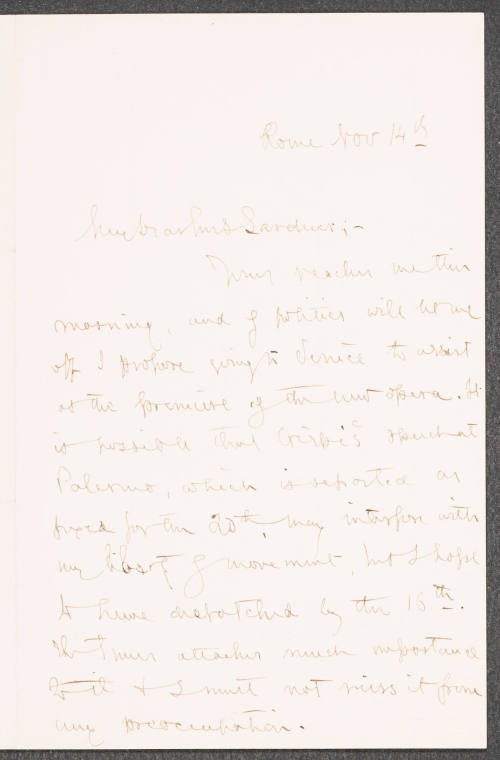 Rome Nov 14th
My dear Mrs Gardner;-
Yours reaches me this
morning, and if politics will let me
off I propose going to Venice to assist
at the premiere of the new opera. It
is possible that Crispi's speech at
Palermo, which is reported as
fixed for the 20th, may interfere with
my liberty of movement, but I hope
to have despatched by the 16th.
The Times attaches much importance
to it & I must not miss it from
any preoccupation.